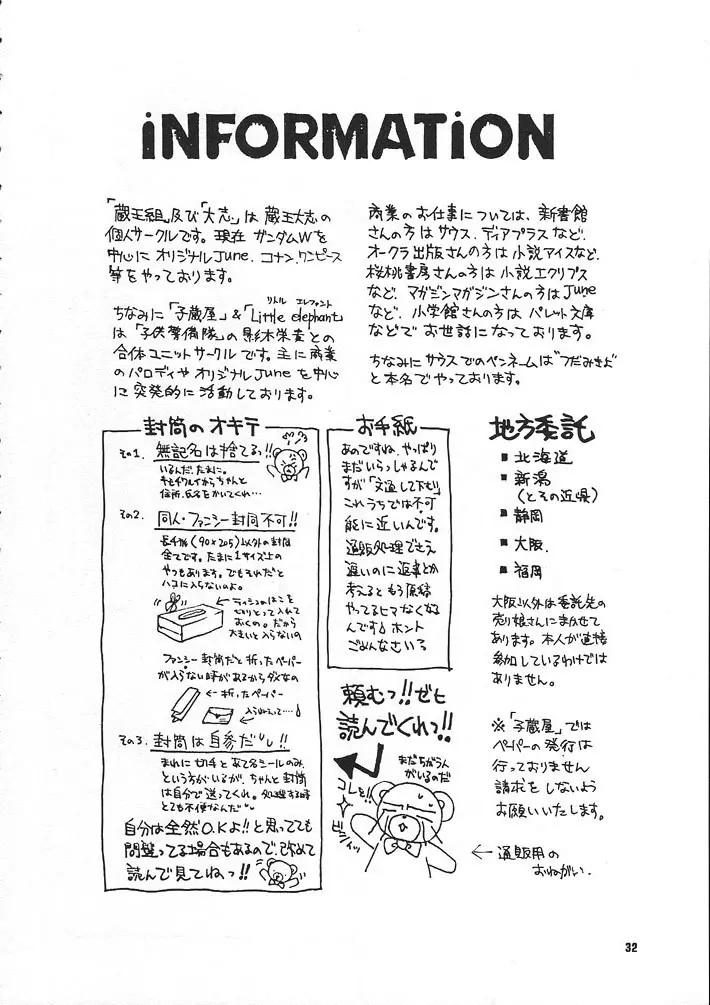 iNFORMATiON
「蔵王組」及び「大志」は 蔵王大志の
個人サークルです。現在 ガンダムWを
中心に オリジナルJune、コナン、ワンピース
等をやっております。
ちなみに「子蔵屋」&「Little elephant」
リトル エレファント
は「子供警備隊」の 影木栄貴との
合体ユニットサークルです。主に商業
のパロディや オリジナルJuneを中心
に 突発的に活動しております。
商業のお仕事については、新書館
さんの方は サウス、ディアプラスなど、
オークラ出版さんの方は小説アイスなど、
桜桃書房さんの方は小説エクリプス
など、マガジンマガジンさんの方はJune
など、小学館さんの方は パレット文庫
などで お世話になっております。
ちなみに サウスでのペンネームは"つだみきよ"
と本名でやっております。
封筒のオキテ
その1. 無記名は捨てるっ!!
いるんだ、たまに。
キモチワルイからちゃんと
住所、氏名をかいてくれ…
その2. 同人・ファンシー封筒不可!!
長4形(90×205)以外の封筒
全てです。たまに1サイズ上の
やつもあります。でもそれだと
ハコに入らないのよ。
← ティシュのはこを
きりとって入れて
おくの。だから
大きいと入らないの
ファンシー封筒だと折ったペーパー
が入らない時があるからダメなの
← 折ったペーパー
入らねえって…!
その3. 封筒は自参だ!!
まれに切手とあて名シールのみ、
という方がいるが、ちゃんと封筒
は自分で送ってくれ。処理する時
とても不便なんだ
自分は全然O.Kよ!!と思ってても
間違ってる場合もあるので、改めて
読んで見てねっ!!
お手紙
あのですね、やっぱり
まだいらっしゃるんで
すが「文通して下さい」
これうちでは不可
能に近いんです。
通販処理でさえ
遅いのに返事とか
考えるともう原稿
やってるヒマなくなる
んです! ホント
ごめんなさい?
頼むっ!!ゼヒ
読んでくれっ!!
まだちがう人
がいるのだ
コレを!!
ビシィッ
← 通販用の
おねがい.
地方委託
■ 北海道
■ 新潟
(とその近県)
■ 静岡
■ 大阪.
■ 福岡
大阪以外は委託先の
売り娘さんにまかせて
あります。本人が直接
参加しているわけでは
ありません。
※「子蔵屋」では
ペーパーの発行は
行っておりません
請求をしないよう
お願いいたします。
32